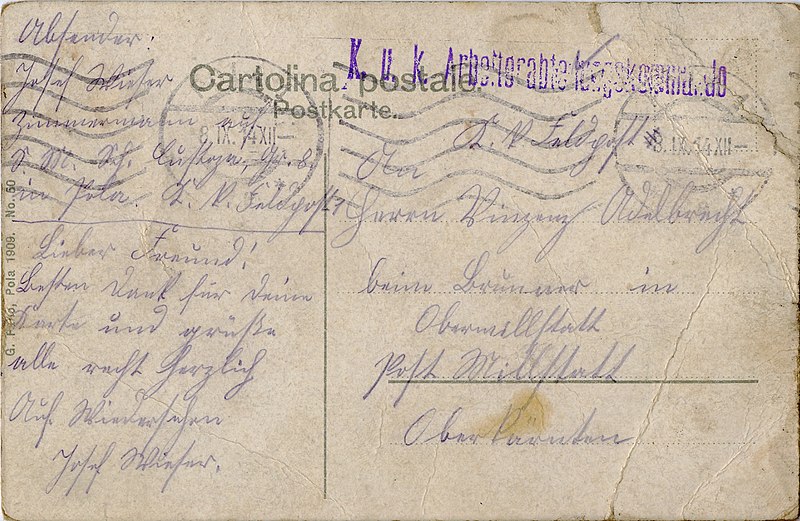 Absender:
Josef Wieser
Zimmermann auf
S. M. Sch. Custoza, Gr. 8
in Pola. K. K. Feldpost
Lieber Freund!
Besten Dank für deine
Karte und grüße
alle recht herzlich
Auf Wiedersehen
Josef Wieser.
K. u. K. Arbeiterabteilungskommando
Cartolina postale
Postkarte.
8.IX.14 XII—
8.IX.14 XII—
K. K. Feldpost
An
Herrn Vinzenz Adelbrecht
beim Brunner in
Obermillstatt
Post Millstatt
Oberkärnten
Pola 1909. No. 50